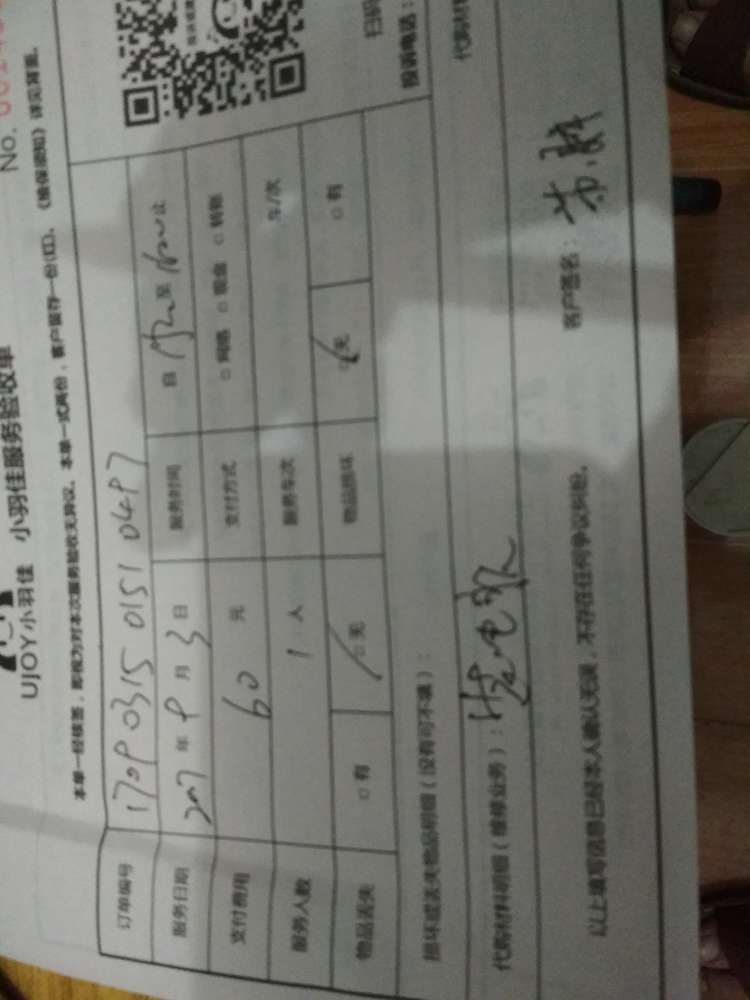 No. 00
UJOY小羽佳 小羽佳服务验收单
本单一经续签，即视为对本次服务验收无异议。本单一式两份，客户留存一份(红)。《维保须知》详见背面。
订单编号 170903150151 0497
服务日期 2017年9月3日 服务时间 自 至 止
支付费用 60 元 支付方式 □网络 □现金 □转账
服务人数 1 人 服务车次 车/次
物品丢失 □有 □无 物品损坏 □无 □有
损坏或丢失物品明细（没有可不填）：
代购材料明细（维修业务）：
以上填写信息已经本人确认无误，不存在任何争议纠纷。 客户签名：
扫码
投诉电话：
代购材